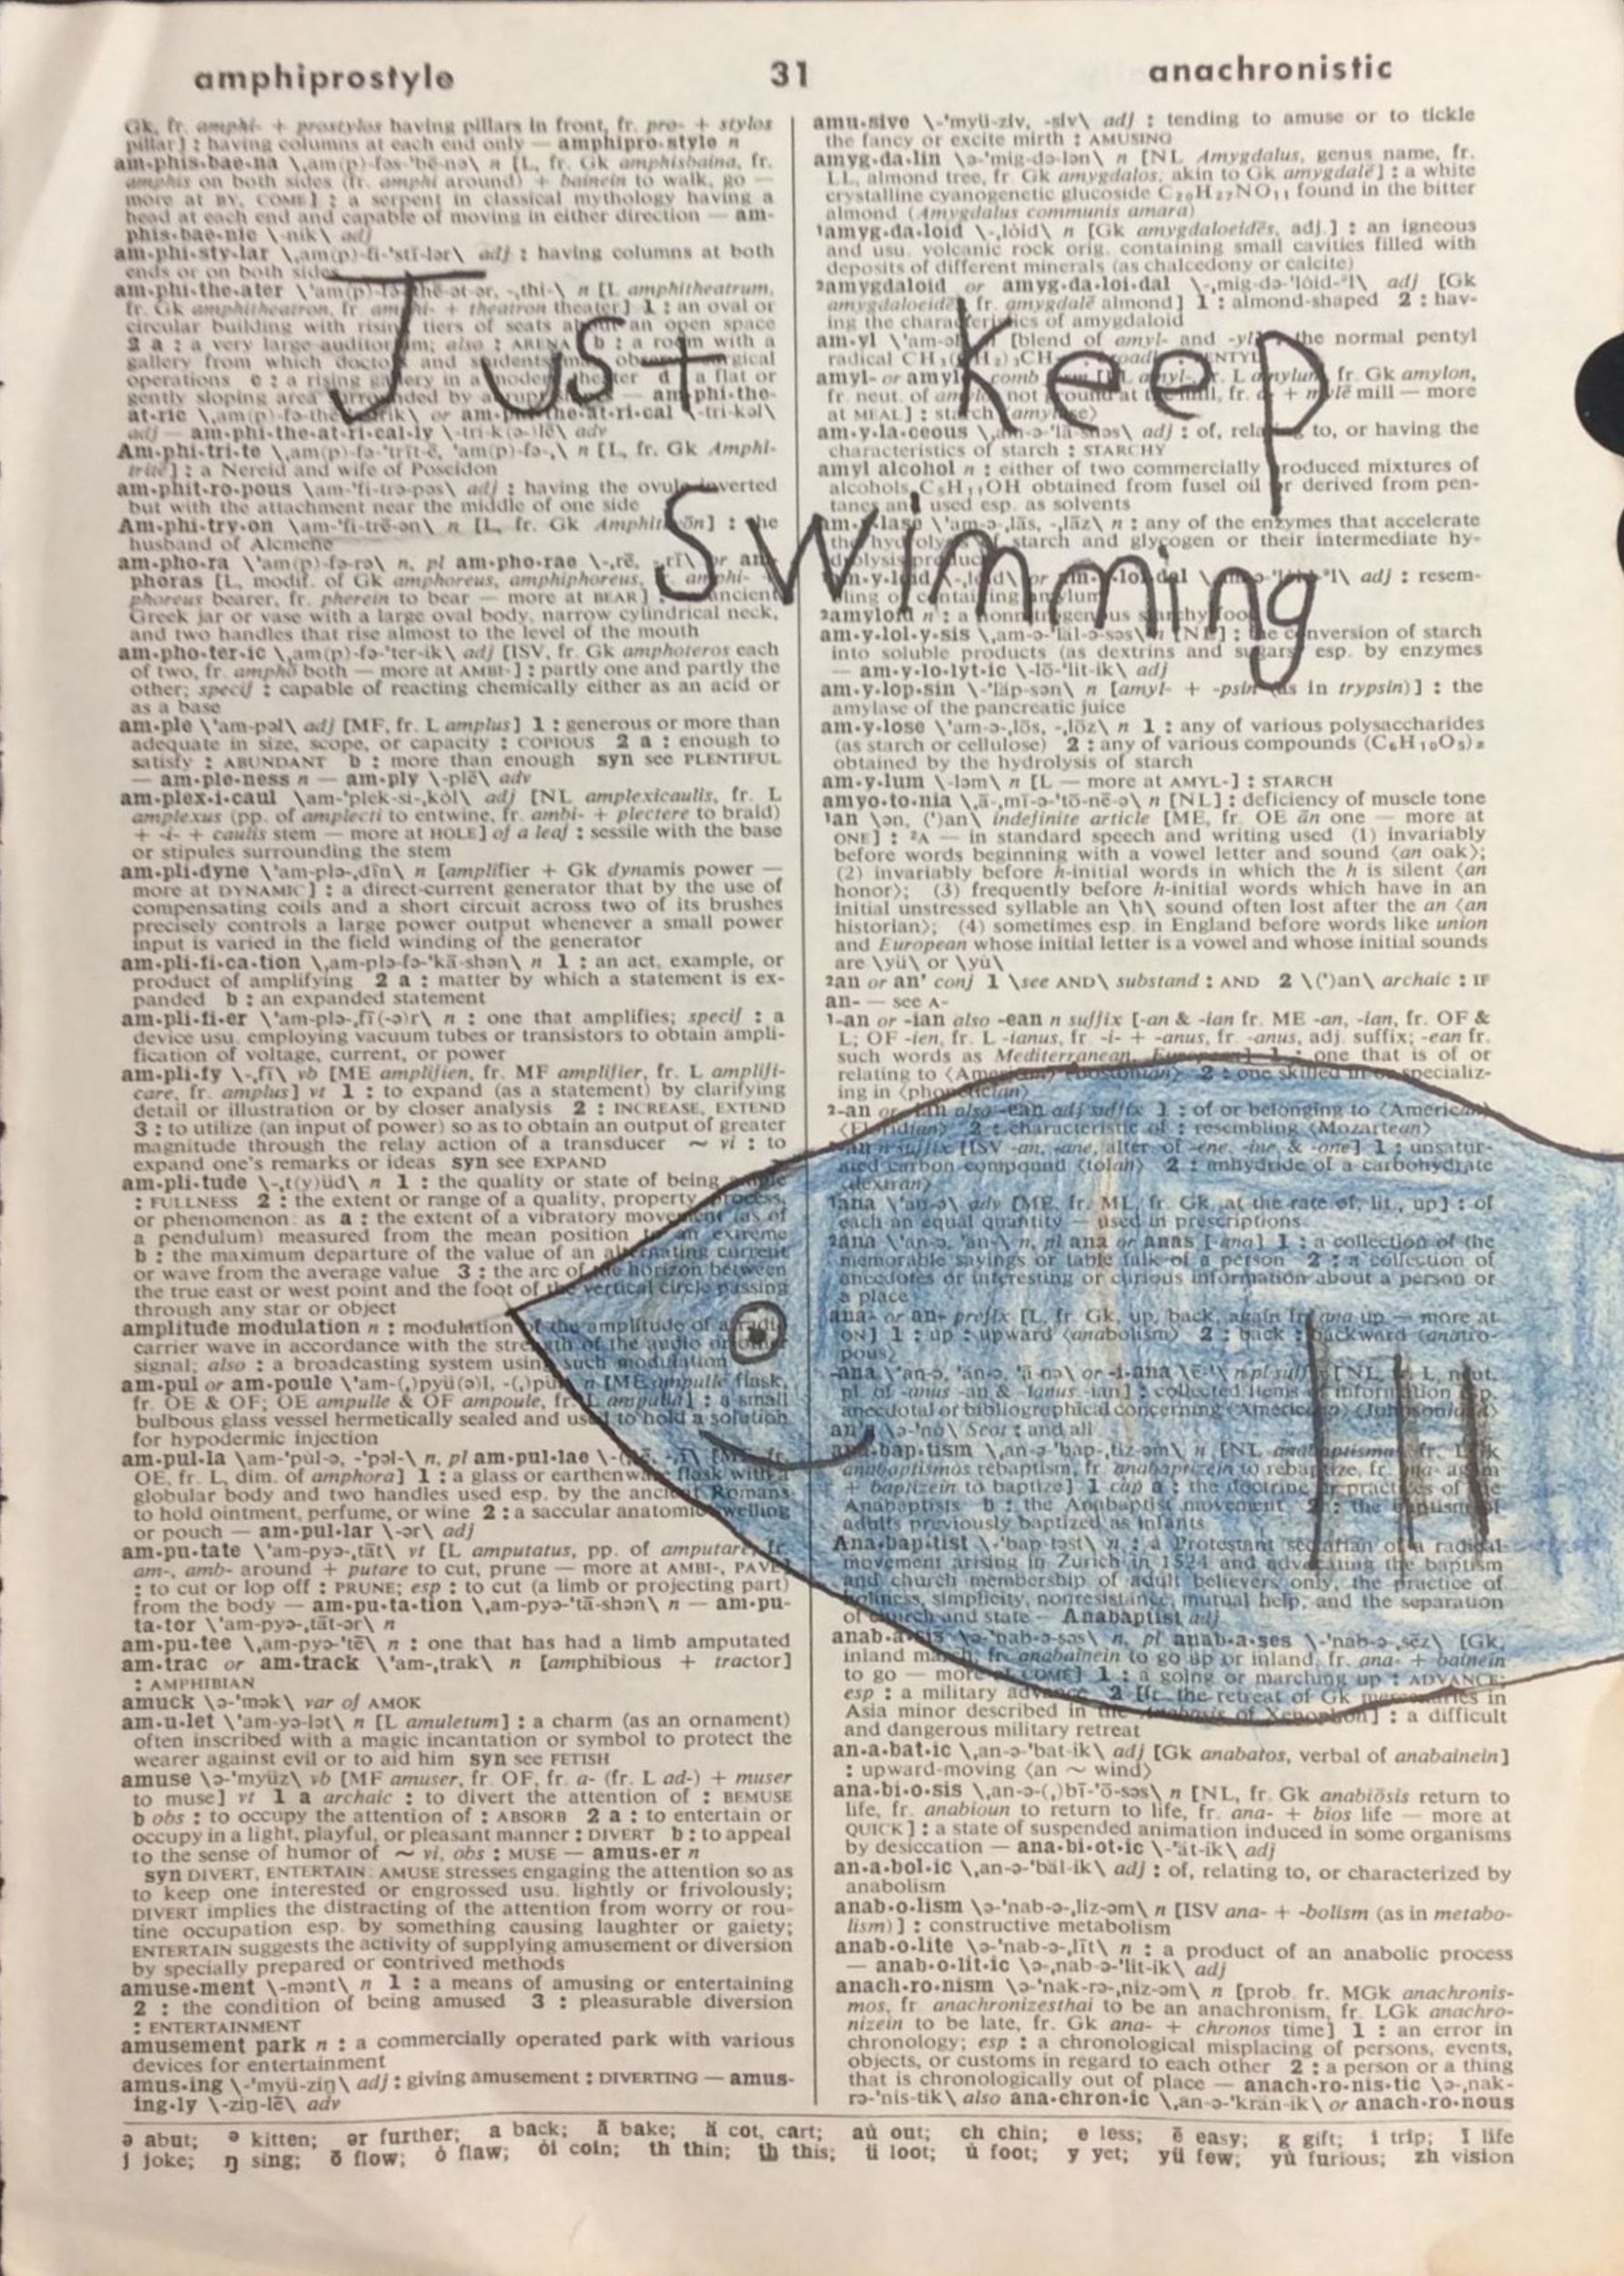 amphiprostyle 31 anachronistic
Just Keep
Swimming
Gk, fr. amphi- + prostylos having pillars in front, fr. pro- + stylos
pillar] : having columns at each end only — amphipro·style n
am·phis·bae·na \ˌam(p)-fəs-ˈbē-nə\ n [L, fr. Gk amphisbaina, fr.
amphis on both sides (fr. amphi around) + bainein to walk, go —
more at BY, COME] : a serpent in classical mythology having a
head at each end and capable of moving in either direction — am-
phis·bae·nic \-nik\ adj
am·phi·sty·lar \ˌam(p)-fi-ˈstī-lər\ adj : having columns at both
ends or on both sides
am·phi·the·ater \ˈam(p)-fə-ˌthē-ət-ər, -ˌthi-\ n [L amphitheatrum,
fr. Gk amphitheatron, fr. amphi- + theatron theater] 1 : an oval or
circular building with rising tiers of seats about an open space
2 a : a very large auditorium; also : ARENA b : a room with a
gallery from which doctors and students may observe surgical
operations c : a rising gallery in a modern theater d : a flat or
gently sloping area surrounded by abrupt slopes — am·phi·the-
at·ric \ˌam(p)-fə-thē-ˈa-trik\ or am·phi·the·at·ri·cal \-tri-kəl\
adj — am·phi·the·at·ri·cal·ly \-tri-k(ə-)lē\ adv
Am·phi·tri·te \ˌam(p)-fə-ˈtrīt-ē, ˈam(p)-fə-ˌ\ n [L, fr. Gk Amphi-
tritē] : a Nereid and wife of Poseidon
am·phit·ro·pous \am-ˈfi-trə-pəs\ adj : having the ovule inverted
but with the attachment near the middle of one side
Am·phi·try·on \am-ˈfi-trē-ən\ n [L, fr. Gk Amphitryōn] : the
husband of Alcmene
am·pho·ra \ˈam(p)-fə-rə\ n, pl am·pho·rae \-ˌrē, -ˌrī\ or am-
phoras [L, modif. of Gk amphoreus, amphiphoreus, fr. amphi- +
phoreus bearer, fr. pherein to bear — more at BEAR] : an ancient
Greek jar or vase with a large oval body, narrow cylindrical neck,
and two handles that rise almost to the level of the mouth
am·pho·ter·ic \ˌam(p)-fə-ˈter-ik\ adj [ISV, fr. Gk amphoteros each
of two, fr. amphō both — more at AMBI-] : partly one and partly the
other; specif : capable of reacting chemically either as an acid or
as a base
am·ple \ˈam-pəl\ adj [MF, fr. L amplus] 1 : generous or more than
adequate in size, scope, or capacity : COPIOUS 2 a : enough to
satisfy : ABUNDANT b : more than enough syn see PLENTIFUL
— am·ple·ness n — am·ply \-plē\ adv
am·plex·i·caul \am-ˈplek-si-ˌkȯl\ adj [NL amplexicaulis, fr. L
amplexus (pp. of amplecti to entwine, fr. ambi- + plectere to braid)
+ -i- + caulis stem — more at HOLE] of a leaf : sessile with the base
or stipules surrounding the stem
am·pli·dyne \ˈam-plə-ˌdīn\ n [amplifier + Gk dynamis power —
more at DYNAMIC] : a direct-current generator that by the use of
compensating coils and a short circuit across two of its brushes
precisely controls a large power output whenever a small power
input is varied in the field winding of the generator
am·pli·fi·ca·tion \ˌam-plə-fə-ˈkā-shən\ n 1 : an act, example, or
product of amplifying 2 a : matter by which a statement is ex-
panded b : an expanded statement
am·pli·fi·er \ˈam-plə-ˌfī(-ə)r\ n : one that amplifies; specif : a
device usu. employing vacuum tubes or transistors to obtain ampli-
fication of voltage, current, or power
am·pli·fy \-ˌfī\ vb [ME amplifien, fr. MF amplifier, fr. L amplifi-
care, fr. amplus] vt 1 : to expand (as a statement) by clarifying
detail or illustration or by closer analysis 2 : INCREASE, EXTEND
3 : to utilize (an input of power) so as to obtain an output of greater
magnitude through the relay action of a transducer ~ vi : to
expand one's remarks or ideas syn see EXPAND
am·pli·tude \-ˌt(y)üd\ n 1 : the quality or state of being ample
: FULLNESS 2 : the extent or range of a quality, property, process,
or phenomenon: as a : the extent of a vibratory movement (as of
a pendulum) measured from the mean position to an extreme
b : the maximum departure of the value of an alternating current
or wave from the average value 3 : the arc of the horizon between
the true east or west point and the foot of the vertical circle passing
through any star or object
amplitude modulation n : modulation of the amplitude of a radio
carrier wave in accordance with the strength of the audio or other
signal; also : a broadcasting system using such modulation
am·pul or am·poule \ˈam-(ˌ)pyü(ə)l, -(ˌ)pül\ n [ME ampulle flask,
fr. OE & OF; OE ampulle & OF ampoule, fr. L ampulla] : a small
bulbous glass vessel hermetically sealed and used to hold a solution
for hypodermic injection
am·pul·la \am-ˈpu̇l-ə, -ˈpəl-\ n, pl am·pul·lae \-(ˌ)ē, -ˌī\ [ME, fr.
OE, fr. L, dim. of amphora] 1 : a glass or earthenware flask with a
globular body and two handles used esp. by the ancient Romans
to hold ointment, perfume, or wine 2 : a saccular anatomic swelling
or pouch — am·pul·lar \-ər\ adj
am·pu·tate \ˈam-pyə-ˌtāt\ vt [L amputatus, pp. of amputare, fr.
am-, amb- around + putare to cut, prune — more at AMBI-, PAVE]
: to cut or lop off : PRUNE; esp : to cut (a limb or projecting part)
from the body — am·pu·ta·tion \ˌam-pyə-ˈtā-shən\ n — am·pu-
ta·tor \ˈam-pyə-ˌtāt-ər\ n
am·pu·tee \ˌam-pyə-ˈtē\ n : one that has had a limb amputated
am·trac or am·track \ˈam-ˌtrak\ n [amphibious + tractor]
: AMPHIBIAN
amuck \ə-ˈmək\ var of AMOK
am·u·let \ˈam-yə-lət\ n [L amuletum] : a charm (as an ornament)
often inscribed with a magic incantation or symbol to protect the
wearer against evil or to aid him syn see FETISH
amuse \ə-ˈmyüz\ vb [MF amuser, fr. OF, fr. a- (fr. L ad-) + muser
to muse] vt 1 a archaic : to divert the attention of : BEMUSE
b obs : to occupy the attention of : ABSORB 2 a : to entertain or
occupy in a light, playful, or pleasant manner : DIVERT b : to appeal
to the sense of humor of ~ vi, obs : MUSE — amus·er n
syn DIVERT, ENTERTAIN: AMUSE stresses engaging the attention so as
to keep one interested or engrossed usu. lightly or frivolously;
DIVERT implies the distracting of the attention from worry or rou-
tine occupation esp. by something causing laughter or gaiety;
ENTERTAIN suggests the activity of supplying amusement or diversion
by specially prepared or contrived methods
amuse·ment \-mənt\ n 1 : a means of amusing or entertaining
2 : the condition of being amused 3 : pleasurable diversion
: ENTERTAINMENT
amusement park n : a commercially operated park with various
devices for entertainment
amus·ing \-ˈmyü-ziŋ\ adj : giving amusement : DIVERTING — amus-
ing·ly \-ziŋ-lē\ adv
amu·sive \-ˈmyü-ziv, -siv\ adj : tending to amuse or to tickle
the fancy or excite mirth : AMUSING
amyg·da·lin \ə-ˈmig-də-lən\ n [NL Amygdalus, genus name, fr.
LL, almond tree, fr. Gk amygdalos; akin to Gk amygdalē] : a white
crystalline cyanogenetic glucoside C₂₀H₂₇NO₁₁ found in the bitter
almond (Amygdalus communis amara)
¹amyg·da·loid \-ˌlȯid\ n [Gk amygdaloeidēs, adj.] : an igneous
and usu. volcanic rock orig. containing small cavities filled with
deposits of different minerals (as chalcedony or calcite)
²amygdaloid or amyg·da·loi·dal \-ˌmig-də-ˈlȯid-ᵊl\ adj [Gk
amygdaloeidēs, fr. amygdalē almond] 1 : almond-shaped 2 : hav-
ing the characteristics of amygdaloid
am·yl \ˈam-əl\ n [blend of amyl- and -yl] : the normal pentyl
radical CH₃(CH₂)₃CH₂ broadly : PENTYL
amyl- or amylo- comb form [LL amyl-, fr. L amylum, fr. Gk amylon,
fr. neut. of amylos not ground at the mill, fr. a- + mylē mill — more
at MEAL] : starch ⟨amylase⟩
am·y·la·ceous \ˌam-ə-ˈlā-shəs\ adj : of, relating to, or having the
characteristics of starch : STARCHY
amyl alcohol n : either of two commercially produced mixtures of
alcohols C₅H₁₁OH obtained from fusel oil or derived from pen-
tanes and used esp. as solvents
am·y·lase \ˈam-ə-ˌlās, -ˌlāz\ n : any of the enzymes that accelerate
the hydrolysis of starch and glycogen or their intermediate hy-
drolysis products
¹am·y·loid \-ˌlȯid\ or am·y·loi·dal \ˌam-ə-ˈlȯid-ᵊl\ adj : resem-
bling or containing amylum
²amyloid n : a nonnitrogenous starchy food
am·y·lol·y·sis \ˌam-ə-ˈläl-ə-səs\ n [NL] : the conversion of starch
into soluble products (as dextrins and sugars) esp. by enzymes
— am·y·lo·lyt·ic \-lō-ˈlit-ik\ adj
am·y·lop·sin \-ˈläp-sən\ n [amyl- + -psin (as in trypsin)] : the
amylase of the pancreatic juice
am·y·lose \ˈam-ə-ˌlōs, -ˌlōz\ n 1 : any of various polysaccharides
(as starch or cellulose) 2 : any of various compounds (C₆H₁₀O₅)ₓ
obtained by the hydrolysis of starch
am·y·lum \-ləm\ n [L — more at AMYL-] : STARCH
amyo·to·nia \ˌā-ˌmī-ə-ˈtō-nē-ə\ n [NL] : deficiency of muscle tone
¹an \ən, (ˈ)an\ indefinite article [ME, fr. OE ān one — more at
ONE] : ²A — in standard speech and writing used (1) invariably
before words beginning with a vowel letter and sound ⟨an oak⟩;
(2) invariably before h-initial words in which the h is silent ⟨an
honor⟩; (3) frequently before h-initial words which have in an
initial unstressed syllable an \h\ sound often lost after the an ⟨an
historian⟩; (4) sometimes esp. in England before words like union
and European whose initial letter is a vowel and whose initial sounds
are \yü\ or \yu̇\
²an or an' conj 1 \see AND\ substand : AND 2 \(ˈ)an\ archaic : IF
an- — see A-
¹-an or -ian also -ean n suffix [-an & -ian fr. ME -an, -ian, fr. OF &
L; OF -ien, fr. L -ianus, fr. -i- + -anus, fr. -anus, adj. suffix; -ean fr.
such words as Mediterranean, European] 1 : one that is of or
relating to ⟨American⟩ ⟨Bostonian⟩ 2 : one skilled in or specializ-
ing in ⟨phonetician⟩
²-an or -ian also -ean adj suffix 1 : of or belonging to ⟨American⟩
⟨Floridian⟩ 2 : characteristic of : resembling ⟨Mozartean⟩
-an n suffix [ISV -an, -ane, alter. of -ene, -ine, & -one] 1 : unsatur-
ated carbon compound ⟨tolan⟩ 2 : anhydride of a carbohydrate
⟨dextran⟩
¹ana \ˈan-ə\ adv [ME, fr. ML, fr. Gk, at the rate of, lit., up] : of
each an equal quantity — used in prescriptions
²ana \ˈan-ə, ˈän-\ n, pl ana or anas [-ana] 1 : a collection of the
memorable sayings or table talk of a person 2 : a collection of
anecdotes or interesting or curious information about a person or
a place
ana- or an- prefix [L, fr. Gk, up, back, again, fr. ana up — more at
ON] 1 : up : upward ⟨anabolism⟩ 2 : back : backward ⟨anatro-
pous⟩
-ana \ˈan-ə, ˈän-ə, ˈā-nə\ or -i·ana \ē-ˈ\ n pl suffix [NL, fr. L, neut.
pl. of -anus -an & -ianus -ian] : collected items of information esp.
anecdotal or bibliographical concerning ⟨Americana⟩ ⟨Johnsoniana⟩
an'a \ə-ˈnȯ\ Scot : and all
ana·bap·tism \ˌan-ə-ˈbap-ˌtiz-əm\ n [NL anabaptismus, fr. LGk
anabaptismos rebaptism, fr. anabaptizein to rebaptize, fr. ana- again
+ baptizein to baptize] 1 cap a : the doctrine or practices of the
Anabaptists b : the Anabaptist movement 2 : the baptism of
adults previously baptized as infants
Ana·bap·tist \-ˈbap-təst\ n : a Protestant sectarian of a radical
movement arising in Zurich in 1524 and advocating the baptism
and church membership of adult believers only, the practice of
holiness, simplicity, nonresistance, mutual help, and the separation
of church and state — Anabaptist adj
anab·a·sis \ə-ˈnab-ə-səs\ n, pl anab·a·ses \-ˈnab-ə-ˌsēz\ [Gk,
inland march, fr. anabainein to go up or inland, fr. ana- + bainein
to go — more at COME] 1 : a going or marching up : ADVANCE;
esp : a military advance 2 [fr. the retreat of Gk mercenaries in
Asia minor described in the Anabasis of Xenophon] : a difficult
and dangerous military retreat
an·a·bat·ic \ˌan-ə-ˈbat-ik\ adj [Gk anabatos, verbal of anabainein]
: upward-moving ⟨an ~ wind⟩
ana·bi·o·sis \ˌan-ə-(ˌ)bī-ˈō-səs\ n [NL, fr. Gk anabiōsis return to
life, fr. anabioun to return to life, fr. ana- + bios life — more at
QUICK] : a state of suspended animation induced in some organisms
by desiccation — ana·bi·ot·ic \-ˈät-ik\ adj
an·a·bol·ic \ˌan-ə-ˈbäl-ik\ adj : of, relating to, or characterized by
anabolism
anab·o·lism \ə-ˈnab-ə-ˌliz-əm\ n [ISV ana- + -bolism (as in metabo-
lism)] : constructive metabolism
anab·o·lite \ə-ˈnab-ə-ˌlīt\ n : a product of an anabolic process
— anab·o·lit·ic \ə-ˌnab-ə-ˈlit-ik\ adj
anach·ro·nism \ə-ˈnak-rə-ˌniz-əm\ n [prob. fr. MGk anachronis-
mos, fr. anachronizesthai to be an anachronism, fr. LGk anachro-
nizein to be late, fr. Gk ana- + chronos time] 1 : an error in
chronology; esp : a chronological misplacing of persons, events,
objects, or customs in regard to each other 2 : a person or a thing
that is chronologically out of place — anach·ro·nis·tic \ə-ˌnak-
rə-ˈnis-tik\ also ana·chron·ic \ˌan-ə-ˈkrän-ik\ or anach·ro·nous
ə abut; ᵊ kitten; ər further; a back; ā bake; ä cot, cart; au̇ out; ch chin; e less; ē easy; g gift; i trip; ī life
j joke; ŋ sing; ō flow; ȯ flaw; ȯi coin; th thin; th this; ü loot; u̇ foot; y yet; yü few; yu̇ furious; zh vision